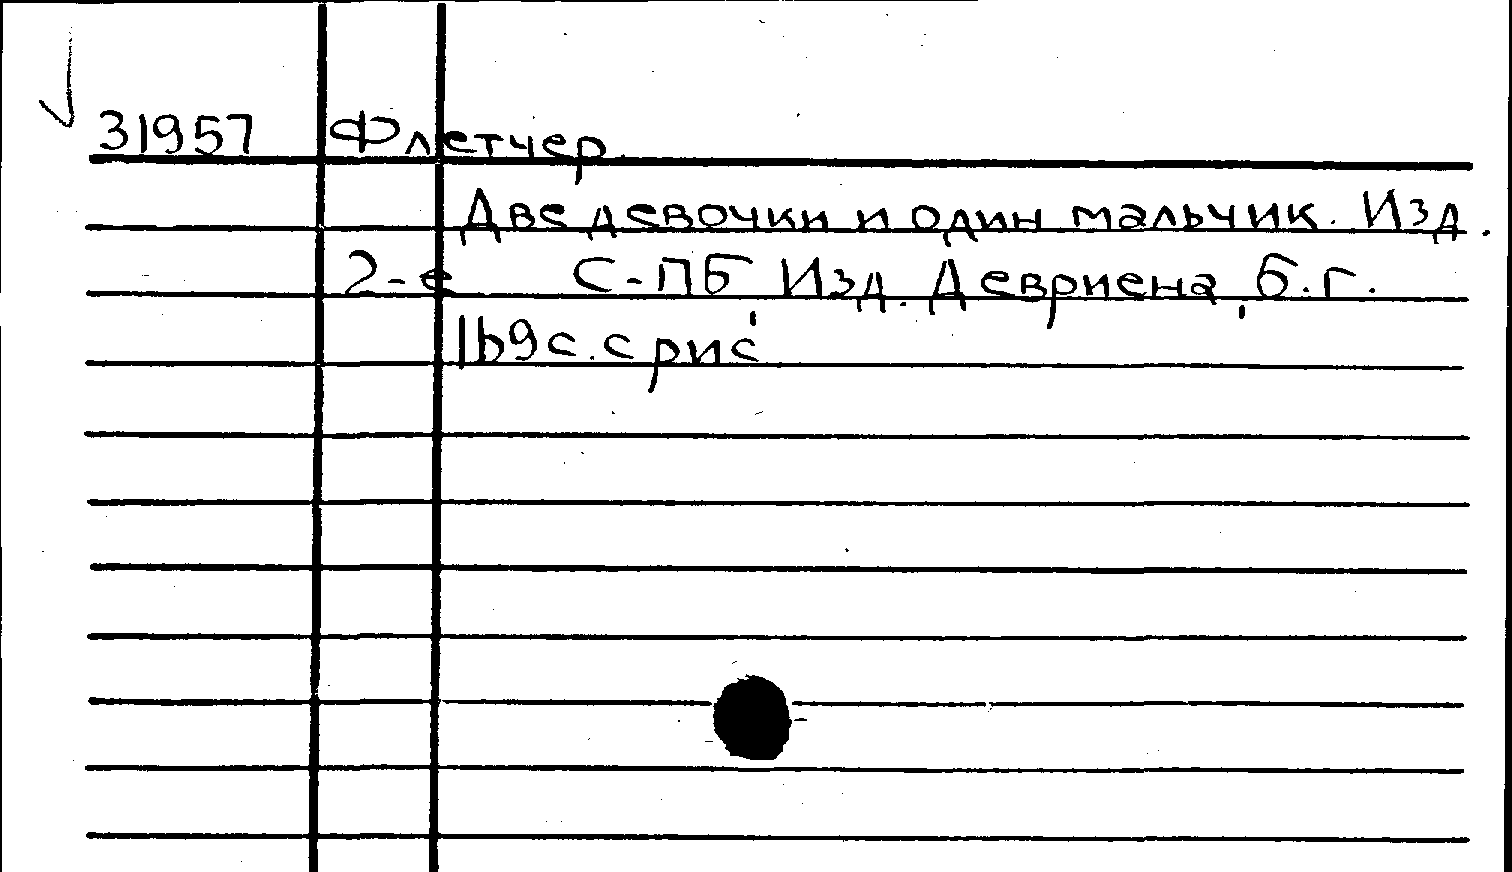 31957 Флетчер
Две девочки и один мальчик. Изд.
2-е С-ПБ Изд. Девриена, б.г.
169с. с рис